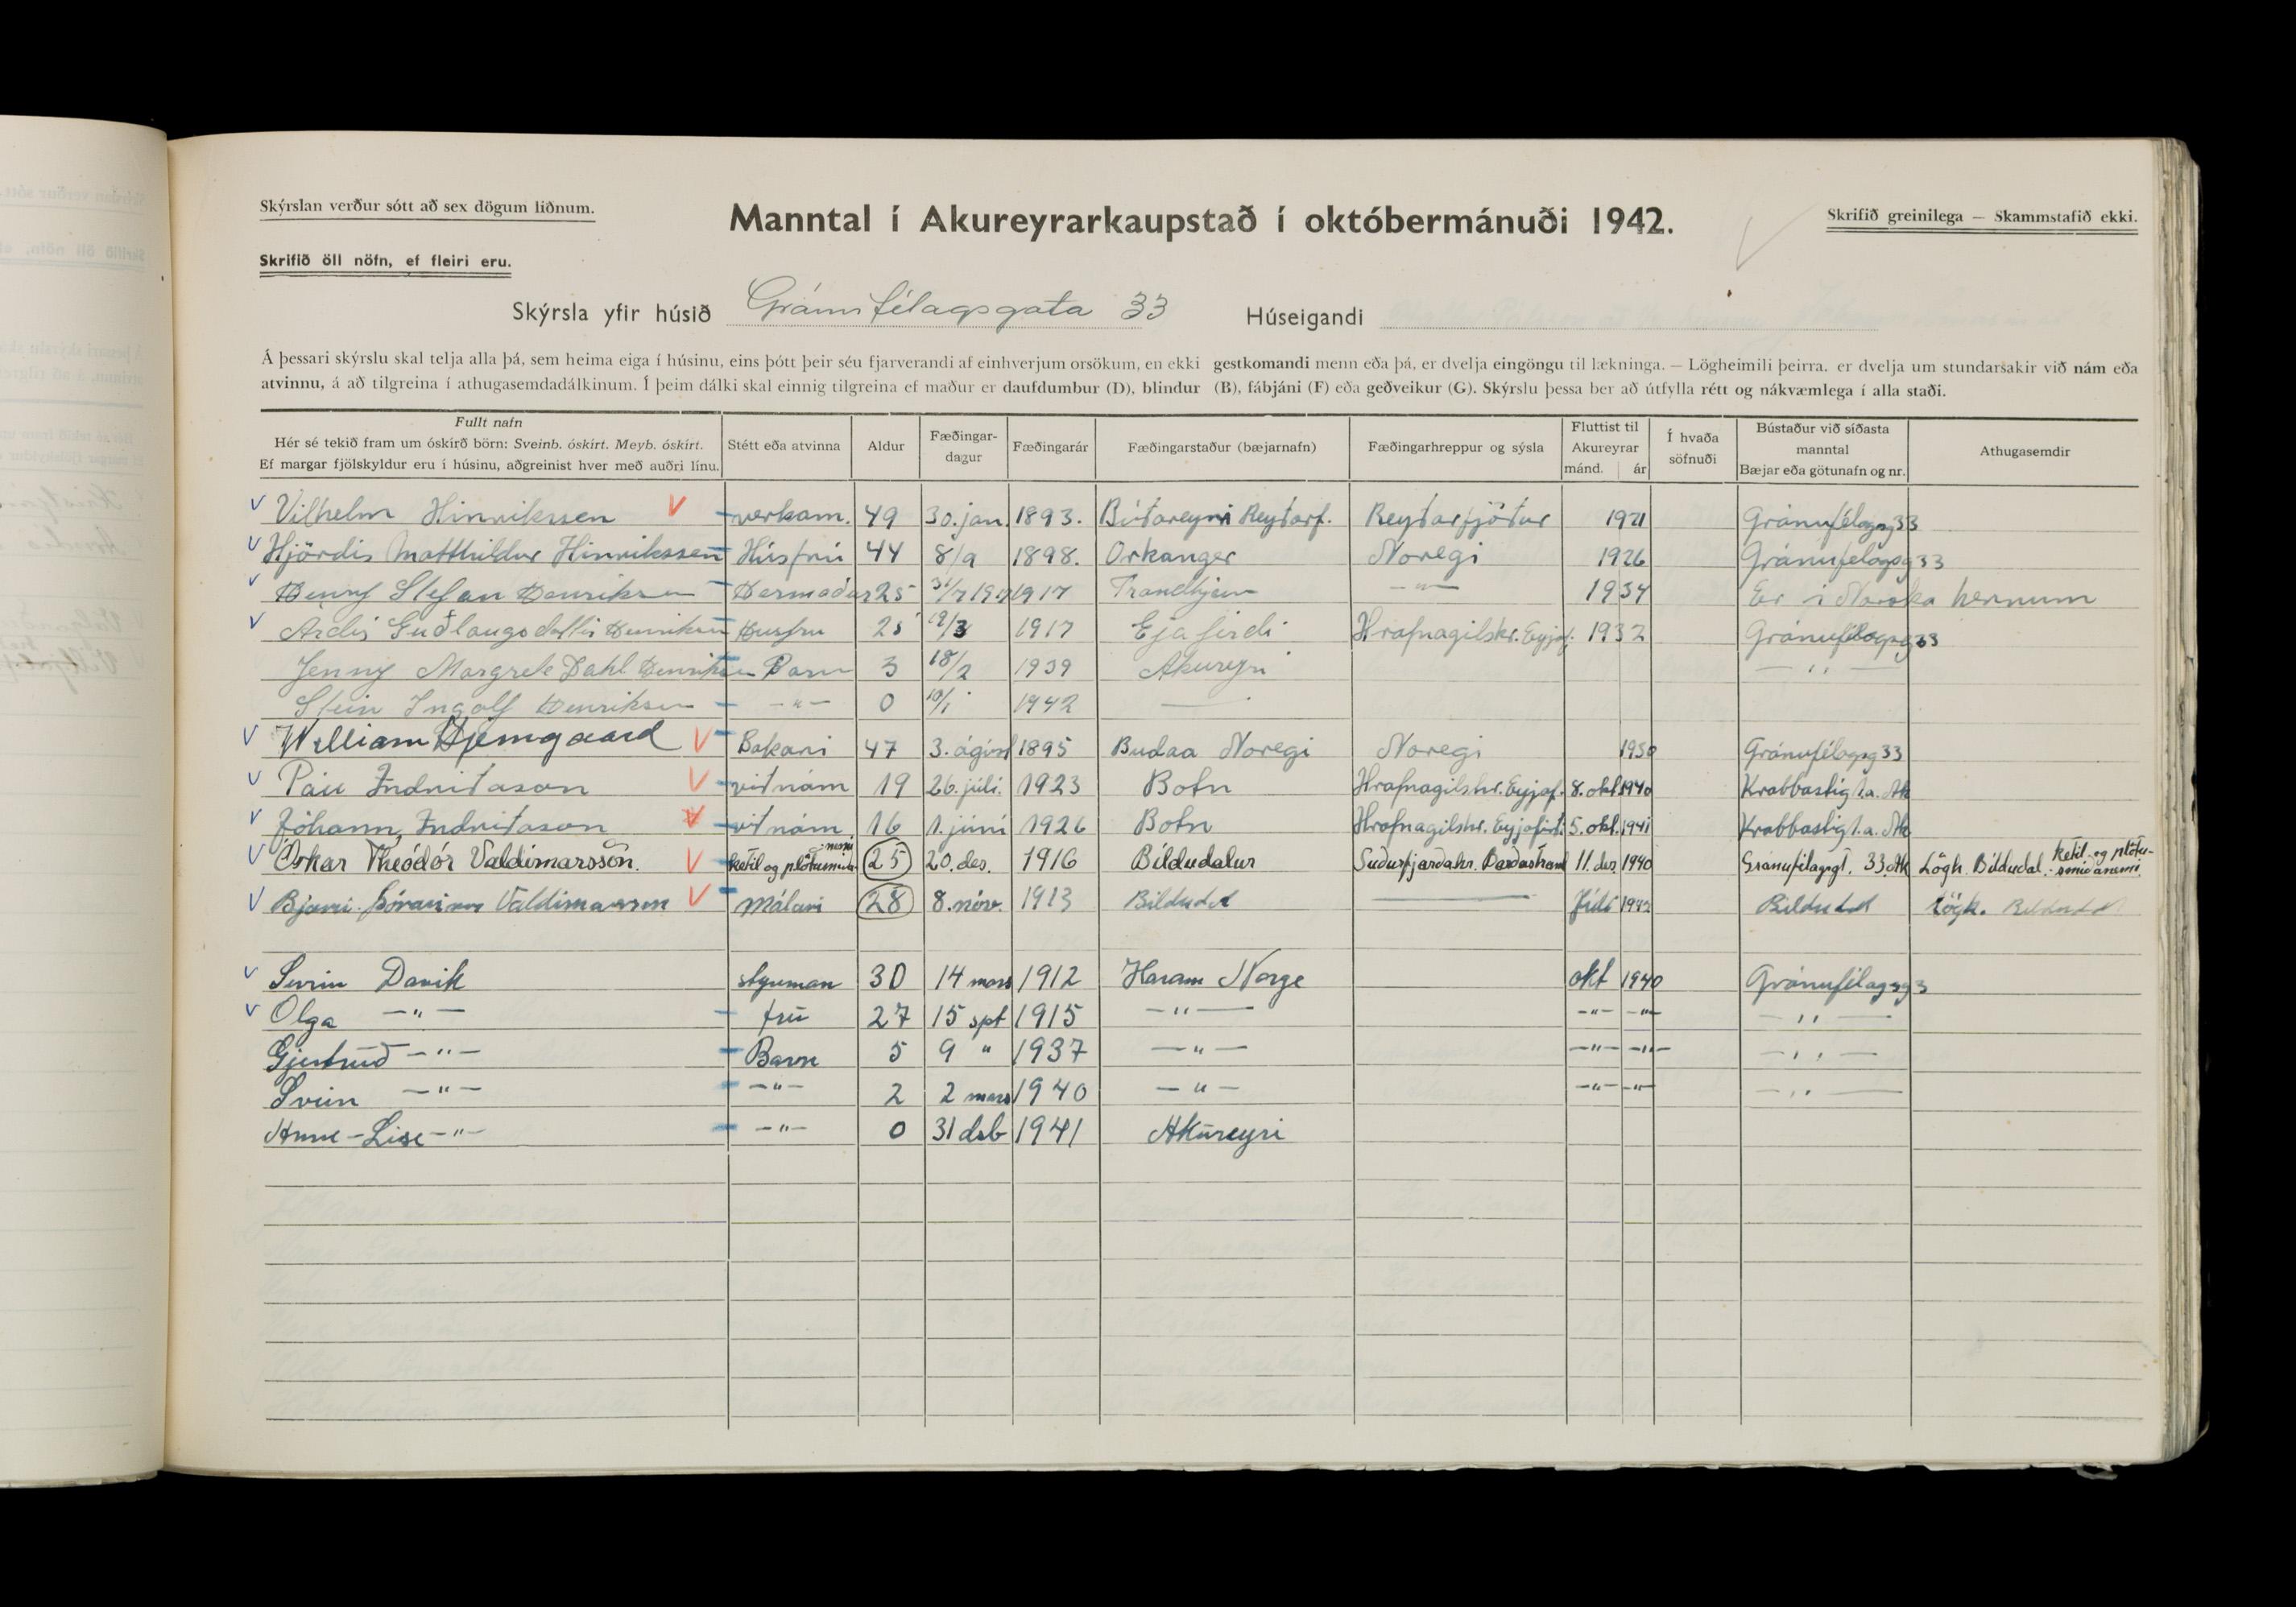 Skýrslan verður sótt að sex dögum liðnum.
Manntal í Akureyrarkaupstað í októbermánuði 1942.
Skrifið greinilega — Skammstafið ekki.
Skrifið öll nöfn, ef fleiri eru.
Skýrsla yfir húsið Gránufélagsgata 33 Húseigandi
Á þessari skýrslu skal telja alla þá, sem heima eiga í húsinu, eins þótt þeir séu fjarverandi af einhverjum orsökum, en ekki gestkomandi menn eða þá, er dvelja eingöngu til lækninga. — Lögheimili þeirra, er dvelja um stundarsakir við nám eða
atvinnu, á að tilgreina í athugasemdadálkinum. Í þeim dálki skal einnig tilgreina ef maður er daufdumbur (D), blindur (B), fábjáni (F) eða geðveikur (G). Skýrslu þessa ber að útfylla rétt og nákvæmlega í alla staði.
Fullt nafn
Hér sé tekið fram um óskírð börn: Sveinb. óskírt. Meyb. óskírt.
Ef margar fjölskyldur eru í húsinu, aðgreinist hver með auðri línu.
Stétt eða atvinna
Aldur
Fæðingar-
dagur
Fæðingarár
Fæðingarstaður (bæjarnafn)
Fæðingarhreppur og sýsla
Fluttist til
Akureyrar
mánd. ár
Í hvaða
söfnuði
Bústaður við síðasta
manntal
Bæjar eða götunafn og nr.
Athugasemdir
Vilhelm Hinrikssen verkam. 49 30. jan. 1893. Búðareyri Reyðarf. Reyðarfjörður 1921 Gránufélagsg 33
Hjördis Matthildur Hinrikssen Húsfrú 44 8/9 1898. Orkanger Noregi 1926 Gránufélagsg 33
Henny Stefan Henriksen Hermaður 25 1917 Trondhjem —"— 1934 Er i Norska hernum
Guðlaugsdóttir Henriksen Husfru 25 1917 Ejafirdi Hrafnagilshr. Eyjaf. 1932 Gránufélagsg 33
Jenny Margrete Dahl Henriksen Barn 3 18/2 1939 Akureyri —"—
Stein Ingolf Henriksen —"— 0 10/1 1942 —
William Hjemgaard Bakari 47 3. ágúst 1895 Budaa Noregi Noregi 1930 Gránufélagsg 33
Páll Indriðason við nám 19 26. júlí. 1923 Botn Hrafnagilshr. Eyjaf. 8. okt. 1940 Krabbastíg 1.a. Ak
Jóhann Indriðason við nám 16 1. júní 1926 Botn Hrafnagilshr. Eyjafirði 5. okt. 1941 Krabbastíg 1.a. Ak
Óskar Theódór Valdimarsson. ketil og plötusmíða-nemi 25 20. des. 1916 Bíldudalur Suðurfjarðahr. Barðastrand 11 des. 1940 Gránufélagsgt. 33. Ak Lögh. Bíldudal. ketil- og plötu-
smíðanemi.
Bjarni Þórarinn Valdimarsson Málari 28 8. nóv. 1913 Bíldudal — Júlí 1942 Bíldudal Lögh. Bíldudal
Svein Davik styrman 30 14 mars 1912 Haram Norge okt 1940 Gránufélagsg
Olga —"— frú 27 15 spt 1915 —"— —"— —"— —"—
Gjertrud —"— Barn 5 9 " 1937 —"— —"— —"— —"—
Svein —"— —"— 2 2 mars 1940 —"— —"— —"— —"—
Anne-Lise —"— —"— 0 31 dsb 1941 Akureyri